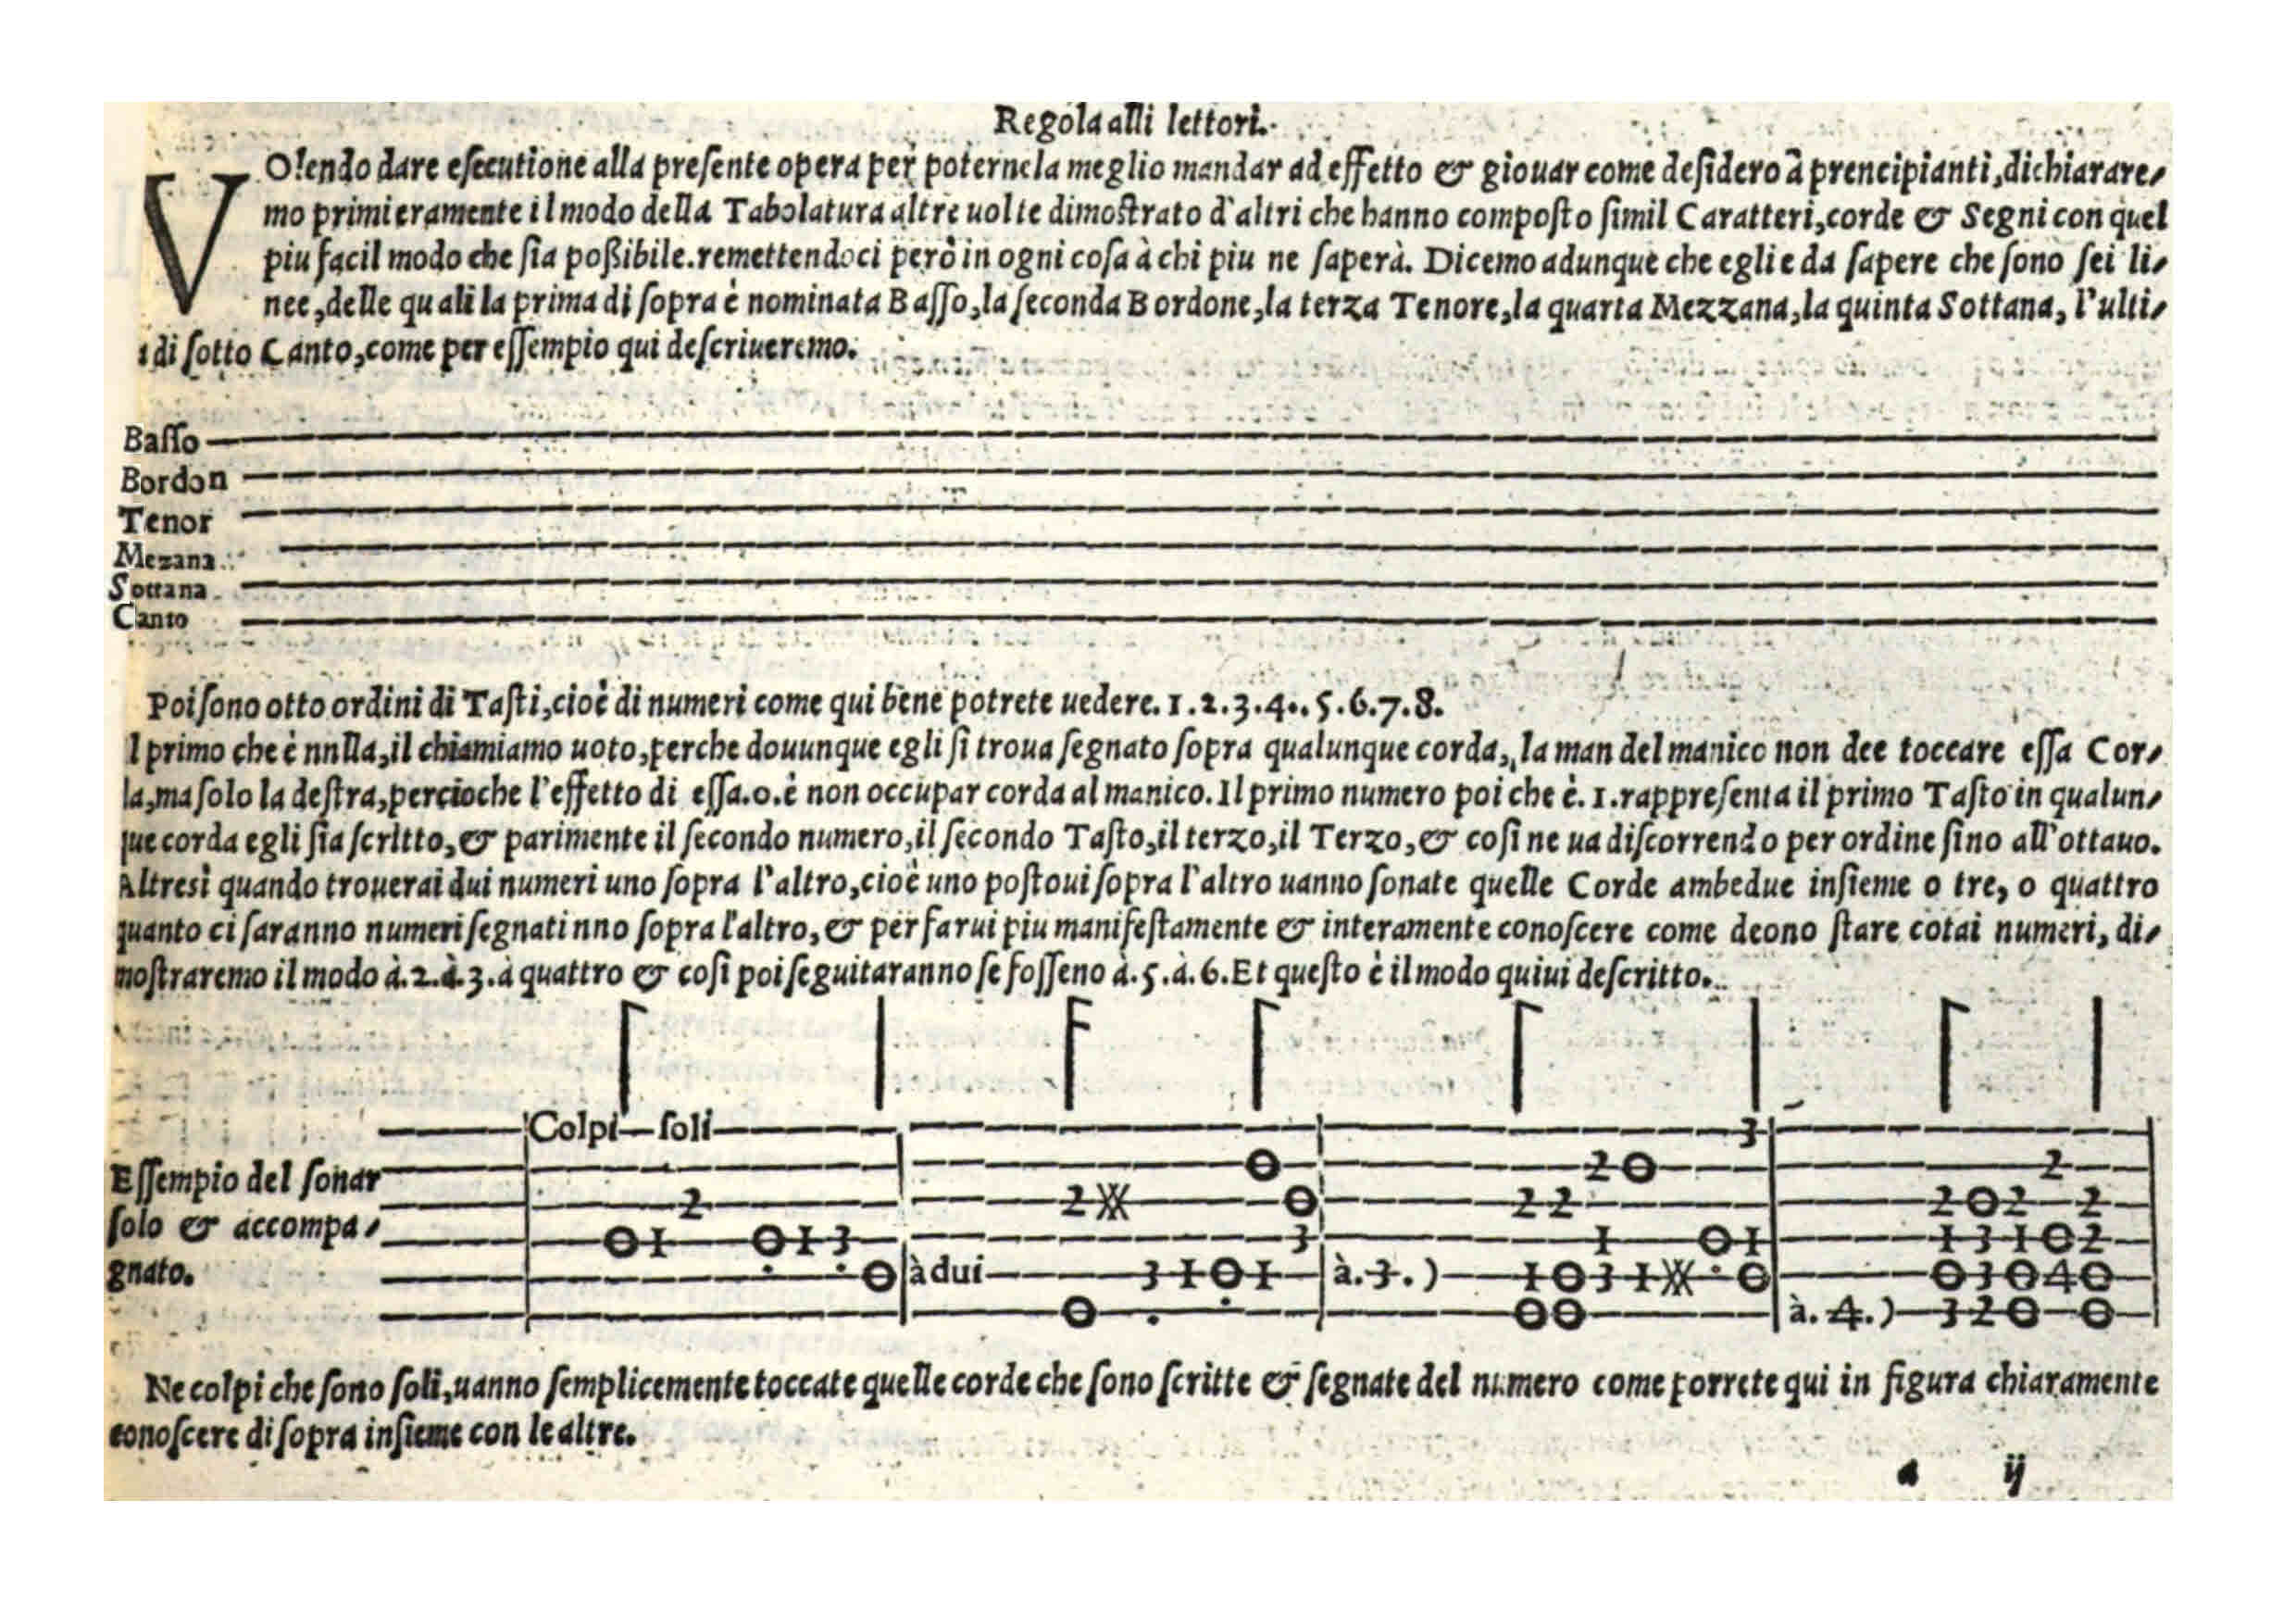 Regola alli lettori.
VOlendo dare eſecutione alla preſente opera per poternela meglio mandar ad effetto & giouar come deſidero à prencipianti, dichiarare-
mo primieramente il modo della Tabolatura altre uolte dimoſtrato d'altri che hanno compoſto ſimil Caratteri, corde & Segni con quel
piu facil modo che ſia poßibile. remettendoci però in ogni coſa à chi piu ne ſaperà. Dicemo adunque che egli e da ſapere che ſono ſei li-
nee, delle quali la prima di ſopra è nominata Baſſo, la ſeconda Bordone, la terza Tenore, la quarta Mezzana, la quinta Sottana, l'ulti-
di ſotto Canto, come per eſſempio qui deſcriueremo.
Baſſo
Bordon
Tenor
Mezana
Sottana
Canto
Poi ſono otto ordini di Taſti, cioè di numeri come qui bene potrete uedere. 1.2.3.4..5.6.7.8.
l primo che è nnlla, il chiamiamo uoto, perche douunque egli ſi troua ſegnato ſopra qualunque corda, la man del manico non dee toccare eſſa Cor-
la, ma ſolo la deſtra, percioche l'effetto di eſſa.o.è non occupar corda al manico. Il primo numero poi che è.1.rappreſenta il primo Taſto in qualun-
que corda egli ſia ſcrltto, & parimente il ſecondo numero, il ſecondo Taſto, il terzo, il Terzo, & coſi ne ua diſcorrendo per ordine ſino all'ottauo.
Altresì quando trouerai dui numeri uno ſopra l'altro, cioè uno poſtoui ſopra l'altro uanno ſonate quelle Corde ambedue inſieme o tre, o quattro
quanto ci ſaranno numeri ſegnati nno ſopra l'altro, & per farui piu manifeſtamente & interamente conoſcere come deono ſtare cotai numeri, di-
moſtraremo il modo à.2.à.3.à quattro & coſi poi ſeguitaranno ſe foſſeno à.5.à.6.Et queſto è il modo quiui deſcritto.
Eſſempio del ſonar
ſolo & accompa-
gnato.
Colpi ſoli
2
0 1 0 1 3
0
à dui
0
2 X 0
3
3 1 0 1
0
à.3.)
3
2 0
2 2
1 0 1
1 0 3 1 X 0
0 0
à.4.)
2
2 0 2 2
1 3 1 0 2
0 3 0 4 0
3 2 0 0
Ne colpi che ſono ſoli, uanno ſemplicemente toccate quelle corde che ſono ſcritte & ſegnate del numero come porrete qui in figura chiaramente
conoſcere di ſopra inſieme con le altre.
a ij